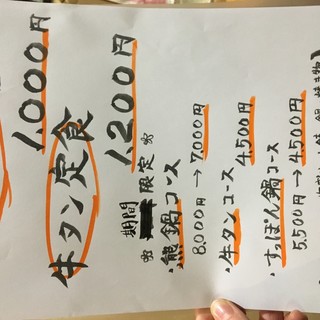 1,000円
牛タン定食
1,200円
期間
※ 限定 ※
・熊鍋コース
8,000円→7,000円
・牛タンコース
4,500円
・すっぽん鍋コース
5,500円→4,500円